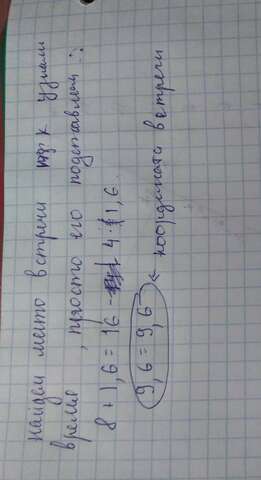 найдем место встречи т к узнали
время, просто его подставляем :
8 + 1,6 = 16 - 4 · 1,6
9,6 = 9,6 ← координата встречи